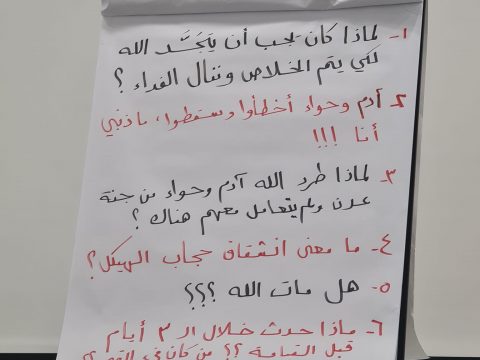 ١- لماذا كان يجب أن يتجسَّد الله
لكي يتم الخلاص وننال الفداء؟
٢- آدم وحواء أخطأوا وسقطوا، ما ذنبي
أنا !!!
٣- لماذا طرد الله آدم وحواء من جنة
عدن ولم يتعامل معهم هناك؟
٤- ما معنى انشقاق حجاب الهيكل؟
٥- هل مات الله ؟؟؟
٦- ماذا حدث خلال الـ ٣ أيام
قبل القيامة ؟؟ من كان في القبر ؟؟